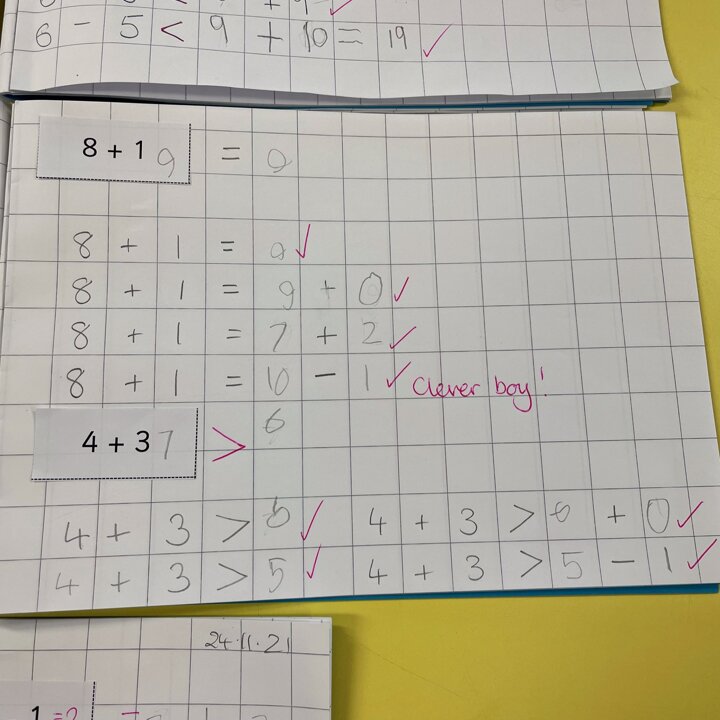 6 - 5 < 9 + 10 = 19 ✓
8 + 1 9 = 9
8 + 1 = 9 ✓
8 + 1 = 9 + 0 ✓
8 + 1 = 7 + 2 ✓
8 + 1 = 10 - 1 ✓ Clever boy!
4 + 3 7 > 6
4 + 3 > 6 ✓ 4 + 3 > 6 + 0 ✓
4 + 3 > 5 ✓ 4 + 3 > 5 - 1 ✓
24.11.21